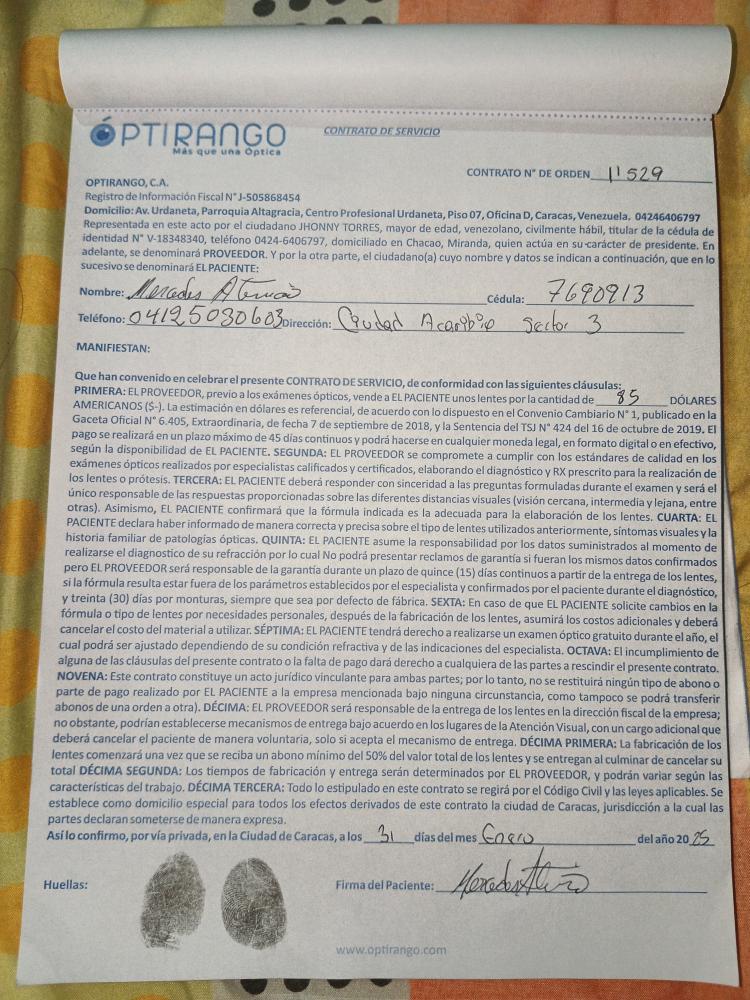 ÓPTIRANGO
Más que una Óptica
CONTRATO DE SERVICIO
CONTRATO N° DE ORDEN 11529
OPTIRANGO, C.A.
Registro de Información Fiscal N° J-505868454
Domicilio: Av. Urdaneta, Parroquia Altagracia, Centro Profesional Urdaneta, Piso 07, Oficina D, Caracas, Venezuela. 04246406797
Representada en este acto por el ciudadano JHONNY TORRES, mayor de edad, venezolano, civilmente hábil, titular de la cédula de
identidad N° V-18348340, teléfono 0424-6406797, domiciliado en Chacao, Miranda, quien actúa en su carácter de presidente. En
adelante, se denominará PROVEEDOR. Y por la otra parte, el ciudadano(a) cuyo nombre y datos se indican a continuación, que en lo
sucesivo se denominará EL PACIENTE:
Nombre: Mercedes Cédula: 7690913
Teléfono: 04125030603 Dirección: Ciudad Sector 3
MANIFIESTAN:
Que han convenido en celebrar el presente CONTRATO DE SERVICIO, de conformidad con las siguientes cláusulas:
PRIMERA: EL PROVEEDOR, previo a los exámenes ópticos, vende a EL PACIENTE unos lentes por la cantidad de 85 DÓLARES
AMERICANOS ($-). La estimación en dólares es referencial, de acuerdo con lo dispuesto en el Convenio Cambiario N° 1, publicado en la
Gaceta Oficial N° 6.405, Extraordinaria, de fecha 7 de septiembre de 2018, y la Sentencia del TSJ N° 424 del 16 de octubre de 2019. El
pago se realizará en un plazo máximo de 45 días continuos y podrá hacerse en cualquier moneda legal, en formato digital o en efectivo,
según la disponibilidad de EL PACIENTE. SEGUNDA: EL PROVEEDOR se compromete a cumplir con los estándares de calidad en los
exámenes ópticos realizados por especialistas calificados y certificados, elaborando el diagnóstico y RX prescrito para la realización de
los lentes o prótesis. TERCERA: EL PACIENTE deberá responder con sinceridad a las preguntas formuladas durante el examen y será el
único responsable de las respuestas proporcionadas sobre las diferentes distancias visuales (visión cercana, intermedia y lejana, entre
otras). Asimismo, EL PACIENTE confirmará que la fórmula indicada es la adecuada para la elaboración de los lentes. CUARTA: EL
PACIENTE declara haber informado de manera correcta y precisa sobre el tipo de lentes utilizados anteriormente, síntomas visuales y la
historia familiar de patologías ópticas. QUINTA: EL PACIENTE asume la responsabilidad por los datos suministrados al momento de
realizarse el diagnostico de su refracción por lo cual No podrá presentar reclamos de garantía si fueran los mismos datos confirmados
pero EL PROVEEDOR será responsable de la garantía durante un plazo de quince (15) días continuos a partir de la entrega de los lentes,
si la fórmula resulta estar fuera de los parámetros establecidos por el especialista y confirmados por el paciente durante el diagnóstico,
y treinta (30) días por monturas, siempre que sea por defecto de fábrica. SEXTA: En caso de que EL PACIENTE solicite cambios en la
fórmula o tipo de lentes por necesidades personales, después de la fabricación de los lentes, asumirá los costos adicionales y deberá
cancelar el costo del material a utilizar. SÉPTIMA: EL PACIENTE tendrá derecho a realizarse un examen óptico gratuito durante el año, el
cual podrá ser ajustado dependiendo de su condición refractiva y de las indicaciones del especialista. OCTAVA: El incumplimiento de
alguna de las cláusulas del presente contrato o la falta de pago dará derecho a cualquiera de las partes a rescindir el presente contrato.
NOVENA: Este contrato constituye un acto jurídico vinculante para ambas partes; por lo tanto, no se restituirá ningún tipo de abono o
parte de pago realizado por EL PACIENTE a la empresa mencionada bajo ninguna circunstancia, como tampoco se podrá transferir
abonos de una orden a otra). DÉCIMA: EL PROVEEDOR será responsable de la entrega de los lentes en la dirección fiscal de la empresa;
no obstante, podrían establecerse mecanismos de entrega bajo acuerdo en los lugares de la Atención Visual, con un cargo adicional que
deberá cancelar el paciente de manera voluntaria, solo si acepta el mecanismo de entrega. DÉCIMA PRIMERA: La fabricación de los
lentes comenzará una vez que se reciba un abono mínimo del 50% del valor total de los lentes y se entregan al culminar de cancelar su
total DÉCIMA SEGUNDA: Los tiempos de fabricación y entrega serán determinados por EL PROVEEDOR, y podrán variar según las
características del trabajo. DÉCIMA TERCERA: Todo lo estipulado en este contrato se regirá por el Código Civil y las leyes aplicables. Se
establece como domicilio especial para todos los efectos derivados de este contrato la ciudad de Caracas, jurisdicción a la cual las
partes declaran someterse de manera expresa.
Así lo confirmo, por vía privada, en la Ciudad de Caracas, a los 31 días del mes Enero del año 2025
Huellas:
Firma del Paciente: Mercedes
www.optirango.com